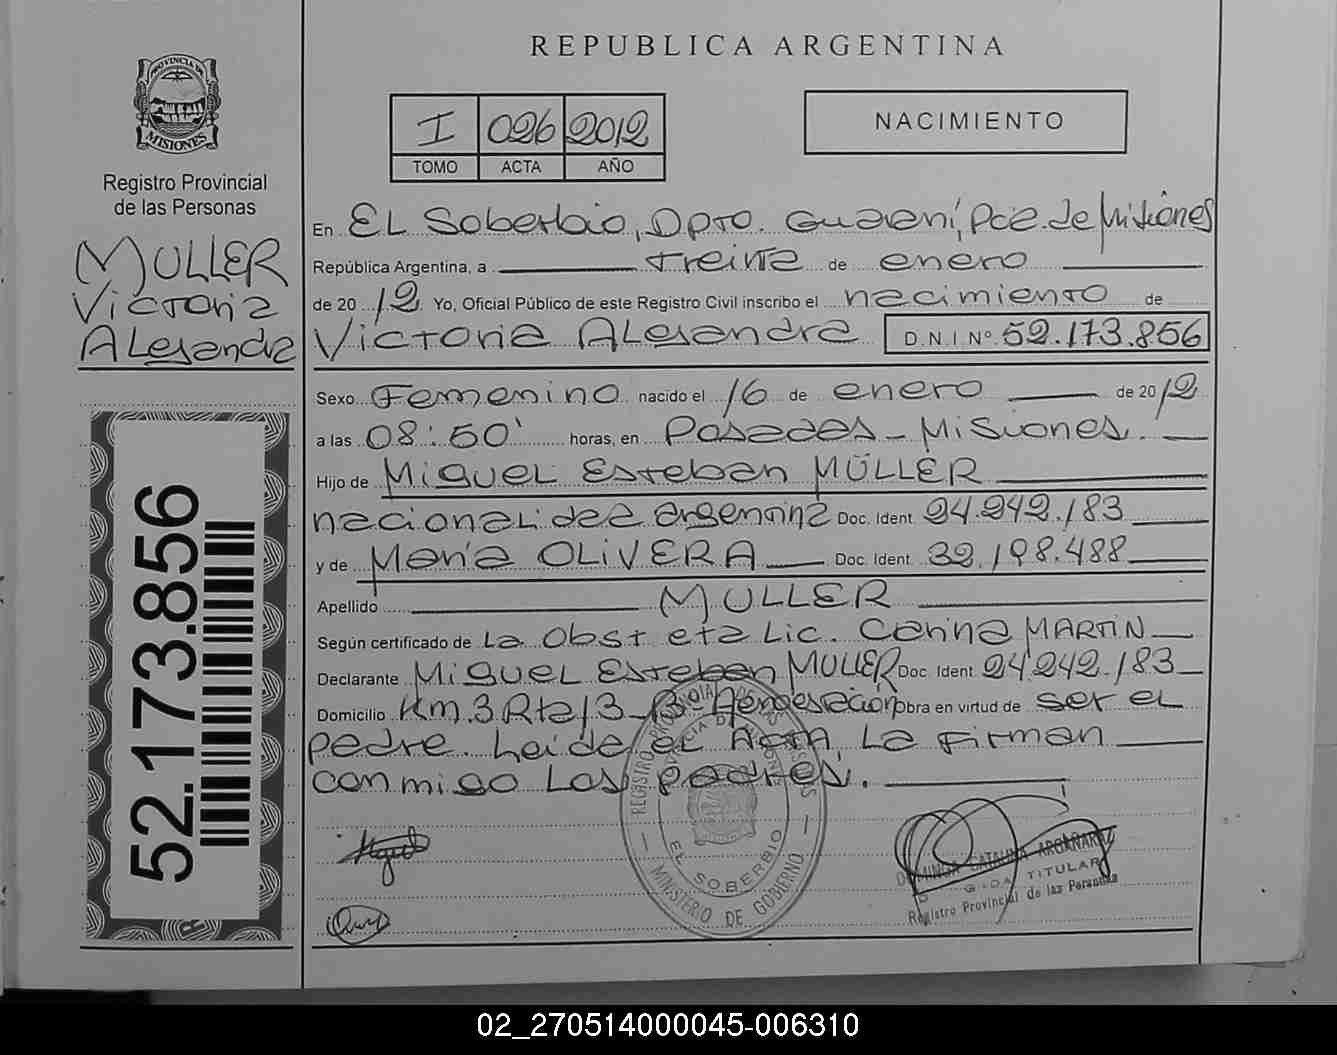 REPUBLICA ARGENTINA
PROVINCIA DE
MISIONES
Registro Provincial
de las Personas
MULLER
Victoria
Alejandra
I 026 2012
TOMO ACTA AÑO
NACIMIENTO
En El Soberbio, Dpto. Guaraní, Pcia. de Misiones
República Argentina, a treinta de enero
de 2012 Yo, Oficial Público de este Registro Civil inscribo el nacimiento de
Victoria Alejandra D.N.I Nº 52.173.856
Sexo Femenino nacido el 16 de enero de 2012
a las 08:50' horas, en Posadas - Misiones.
Hijo de Miguel Esteban MÜLLER
nacionalidad argentina Doc. Ident. 24.242.183
y de María OLIVERA Doc. Ident. 32.198.488
Apellido MULLER
Según certificado de La Obstetra Lic. Carina MARTIN
Declarante Miguel Esteban MULLER Doc. Ident. 24.242.183
Domicilio Km. 3 Rta 13 - obra en virtud de ser el
padre. Leída el Acta, La firman
conmigo Los padres.
52.173.856
REGISTRO PROVINCIAL DE LAS PERSONAS
PROVINCIA DE MISIONES
EL SOBERBIO
MINISTERIO DE GOBERNO
Miguel
DOMINGA CATALINA ARGAÑARAZ
TITULAR
Registro Provincial de las Personas
02_270514000045-006310